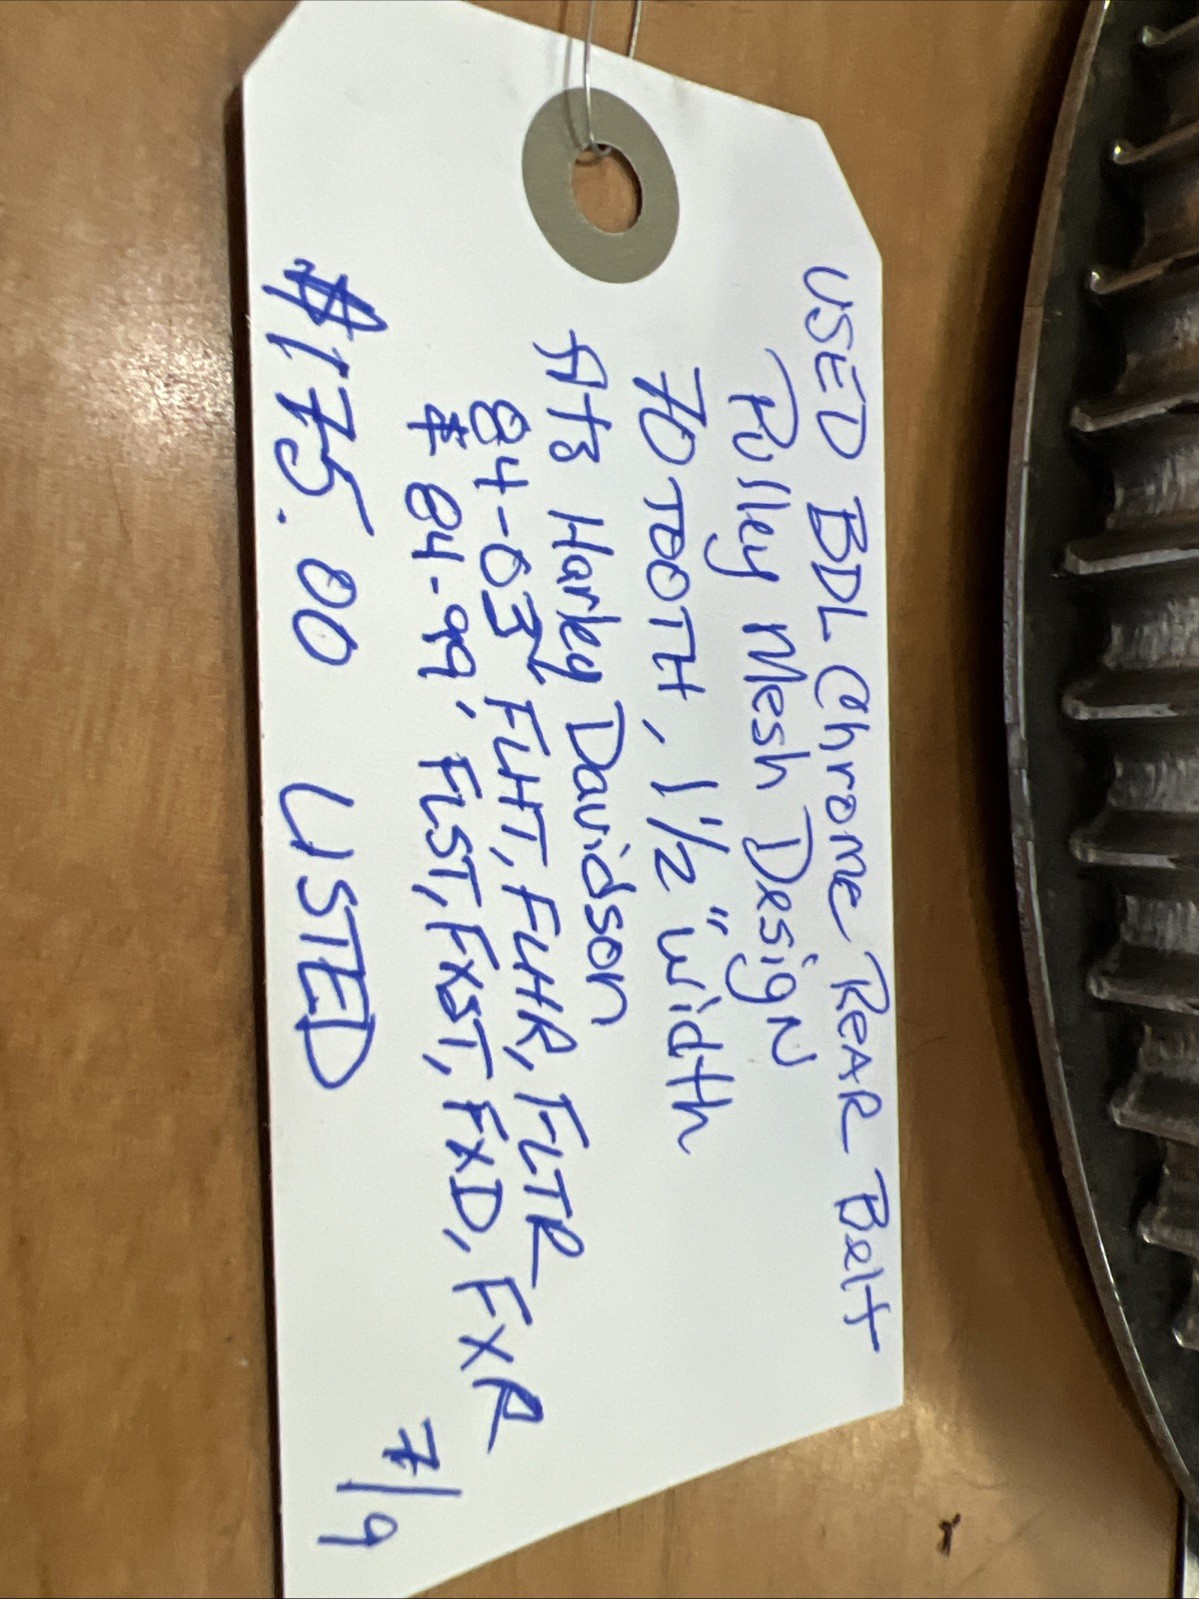 USED BDL Chrome ReAR Belt
Pulley Mesh Design
70 TOOTH, 1 1/2" width
fits Harley Davidson
84-03 FLHT, FLHR, FLTR
& 84-99, FLST, FXST, FXD, FXR
$175.00 USTED
7/9